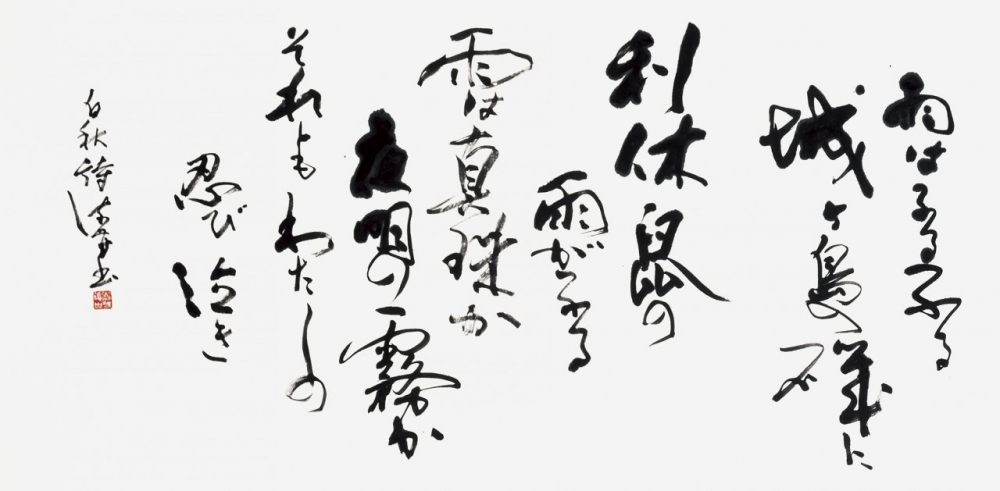 雨はふるふる
城ヶ島の磯に
利休鼠の
雨がふる
雨は真珠か
夜明の霧か
それともわたしの
忍び泣き
白秋詩 書